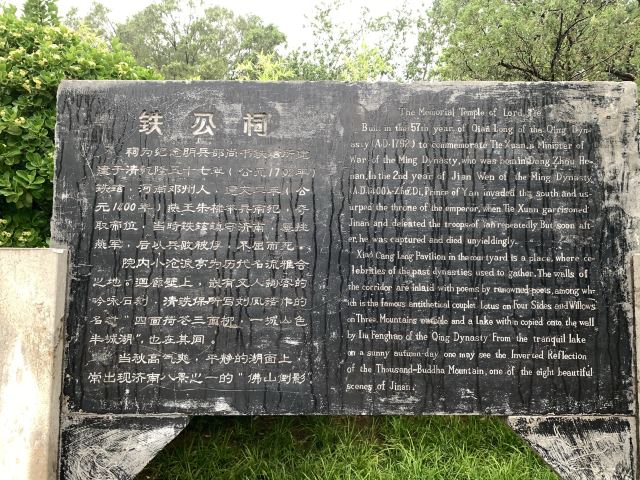 鉄公祠
祠为纪念明兵部尚书铁铉而建
建于清乾隆五十七年（公元1792年）
铁铉，河南邓州人，建文二年（公
元1400年）燕王朱棣率兵南犯，夺
取帝位，当时铁铉镇守济南，屡挫
燕军，后以兵败被俘，不屈而死。
院内小沧浪亭为历代名流雅会
之地。迴廊壁上，嵌有文人骚客的
吟咏石刻，清铁保所写刘凤诰作的
名对“四面荷花三面柳，一城山色
半城湖”也在其间。
当秋高气爽，平静的湖面上，
常出现济南八景之一的“佛山倒影”
The Memorial Temple of Lord Tie
Built in the 57th year of Qian Long of the Qing Dyn-
asty (A.D.1792) to commemorate Tie Xuan, a Minister of
War of the Ming Dynasty, who was born in Deng Zhou He-
nan, In the 2nd year of Jian Wen of the Ming Dynasty,
(A.D.1400), Zhu Di, Prince of Yan invaded the south and us-
urped the throne of the emperor, when Tie Xuan garrisoned
Jinan and defeated the troops of Yan repeatedly But soon aft-
er, he was captured and died unyieldingly.
Xiao Cang Lang Pavilion in the courtyard is a place, where ce-
lebrities of the past dynasties used to gather. The walls of
the corridor are inlaid with poems by renowned poets, among wh-
ich is the famous antithetical couplet Lotus on Four Sides and Willows
on Three, Mountains outside and a Lake within copied onto the wall
by Liu Fenghao of the Qing Dynasty From the tranquil lake
on a sunny autumn day one may see the Inverted Reflection
of the Thousand-Buddha Mountain, one of the eight beautiful
scenes of Jinan.